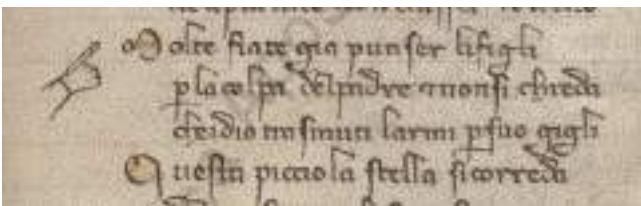 Molte fiate gia pianser lifigli
p lacolpa delpadre enonsi chreda
cheidio trasmuti larmi psuo gigli
Questa picciola stella sicorreda